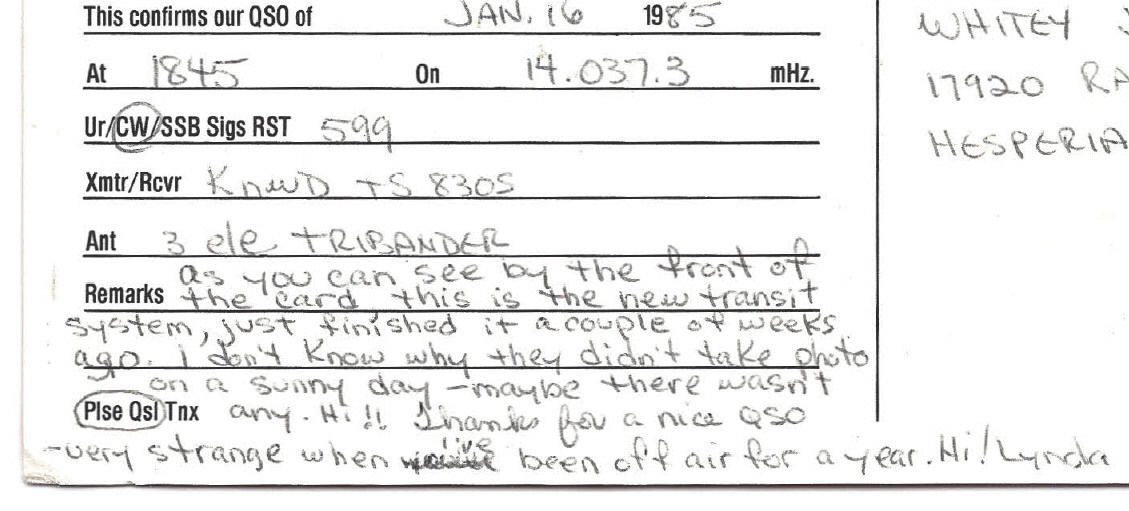 This confirms our QSO of JAN. 16 1985
At 1845 On 14.037.3 mHz.
Ur/CW/SSB Sigs RST 599
Xmtr/Rcvr KnwD TS 830S
Ant 3 ele TRIBANDER
Remarks as you can see by the front of
the card, this is the new transit
system, just finished it a couple of weeks
ago. I don't know why they didn't take photo
on a sunny day - maybe there wasn't
Plse Qsl Tnx any. Hi!! Thanks for a nice QSO
-very strange when I've been off air for a year. Hi! Lynda
WHITEY J
17920 RA
HESPERIA